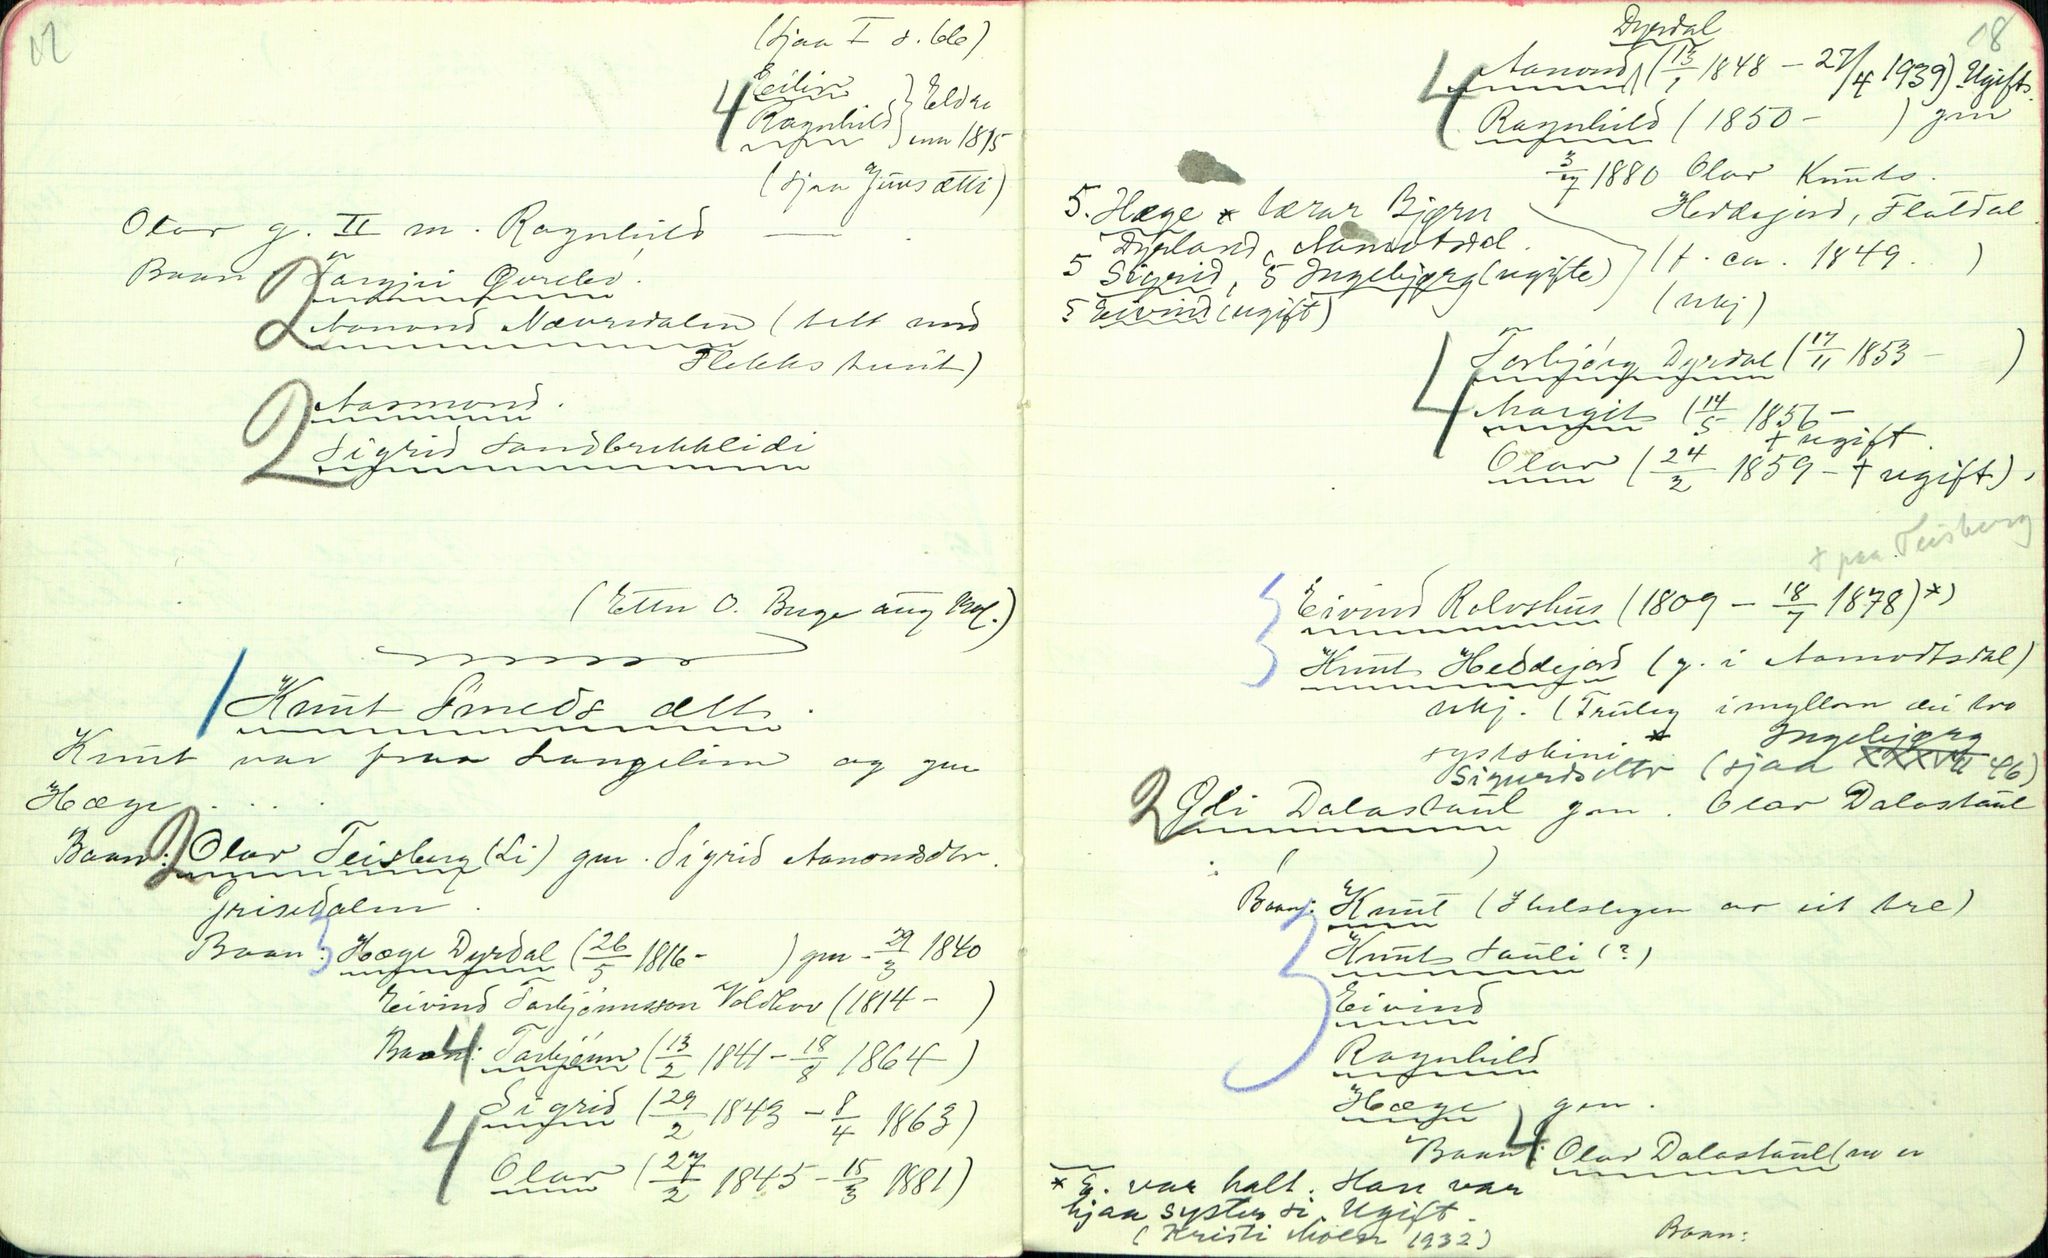 (sjaa I s. 66)
4 Eilin
Ragnhild } Eldre
enn 1815
(sjaa Juvs ætti)
Olav g. II m. Ragnhild —
Baan: 2 Targjei Qvrebø.
Aanond Nævrsdalen (helt med
Flekks hunit)
2 Aasmond.
Sigrid Sandbrekkleidi
(Etter O. Buge aug
1 Knut Smeds ætt.
Knut var fraa Langelim og gm
Hæge . . . .
Baan: 2 Olav Teisberg (Li) gm. Sigrid Aanondsdtr.
Grisedalen.
Baan: 3 Hæge Dyrdal (26/5 1816- ) gm. 29/3 1840
Eivind Tarbjønnsson Voldhov (1814- )
Baan: 4 Tarbjønn (13/2 1841 - 18/8 1864)
Sigrid (29/2 1843 - 8/4 1863)
4 Olav (27/2 1845 - 15/3 1881)
18
Dyrdal
4 Aanond (13/1 1848 - 27/4 1939) Ugift.
Ragnhild (1850- ) gm
3/7 1880 Olav Knuts.
Heddejord, Flatdal
5. Hæge * Tarar Bjørn
Dyrland, Aamotsdal.
5 Sigrid, 5 Ingebjørg (ugifte)
5 Eivind (ugift)
(f. ca. 1849. )
(ukj)
4 Torbjørg Dyrdal (17/11 1853 - )
Margit (14/5 1856 -
+ ugift.
Olav (24/2 1859 - + ugift).
+ paa Teisberg
3 Eivind Rolvshus (1809 - 18/7 1878)*)
3 Knut Heddejord (g. i Aamodtsdal)
ukj. (Truleg imyllom dei tvo
systskini *
Ingebjørg
Sigurdsdtr (sjaa XXXVII 46)
2 Gli Dalastaul gm. Olav Dalastaul
: ( )
Baan: 3 Knut (Ihelslegen av eit tre)
Knut Sauli (?)
Eivind
Ragnhild
Hæge gm.
Baan: 4 Olav Dalastaul (no er
* E. var halt. Han var
hjaa syster si. Ugift.
(Kristi Moen 1932)
Baan: